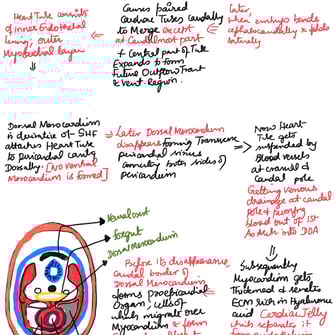 Heart Tube consists
of inner Endothelial
lining, outer
Myocardial layer
Causes paired
Cardiac Tubes caudally
to Merge except
at Caudalmost part
+ Central part of Tube
Expands to form
future Outflow Tract
& Vent. Region.
Later,
when embryo bends
cephalocaudally & folds
laterally
Dorsal Mesocardium
is derivative of SHF
attaches Heart Tube
to pericardial cavity
Dorsally. [No ventral
Mesocardium is formed]
Later Dorsal Mesocardium
disappears forming Transverse
pericardial sinus
connecting both sides of
Pericardium
Now Heart
Tube gets
suspended by
Blood vessels
at cranial &
Caudal pole
Getting venous
drainage at caudal
pole & pumping
blood out of 1st
Ao Arch into DOA
Neural crest
foregut
Dorsal Mesocardium
Before its disappearance
Caudal border of
Dorsal Mesocardium
forms proepicardial
Organ, cells of
which migrate over
Myocardium & form
Subsequently
Myocardium gets
Thickened & secretes
ECM rich in Hyaluronic
acid Cardiac Jelly
which separates it